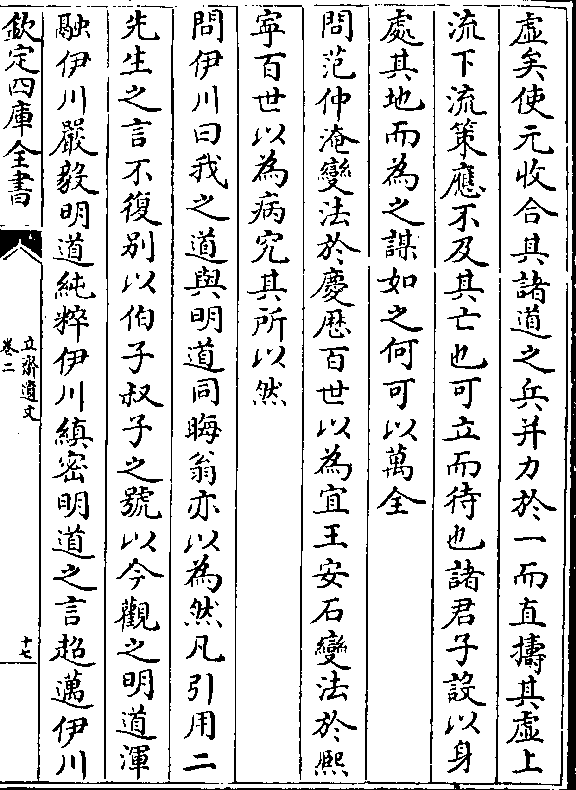 虚矣使元收合其諸道之兵并力於一而直擣其虚上
流下流策應不及其亡也可立而待也諸君子設以身
處其地而為之謀如之何可以萬全
問范仲淹變法於慶厯百世以為宜王安石變法於熙
寧百世以為病究其所以然
問伊川曰我之道與明道同晦翁亦以為然凡引用二
先生之言不復别以伯子叔子之號以今觀之明道渾
融伊川嚴毅明道純粹伊川縝密明道之言超邁伊川
欽定四庫全書
立齋遺文
卷二
十七